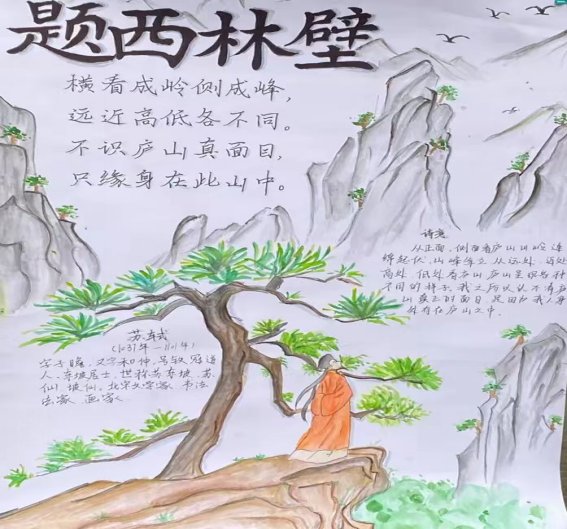 题西林壁
横看成岭侧成峰,
远近高低各不同。
不识庐山真面目,
只缘身在此山中。
诗意
从正面、侧面看庐山山岭连
绵起伏,山峰耸立,从远处、近处
高处、低处看庐山,庐山呈现各种
不同的样子。我之所以认不清庐
山真正的面目,是因为我人身
处在庐山之中。
苏轼
(1037年—1101年)
字子瞻,又字和仲,号铁冠道
人、东坡居士,世称苏东坡、苏
仙、坡仙,北宋文学家、书法
家、画家